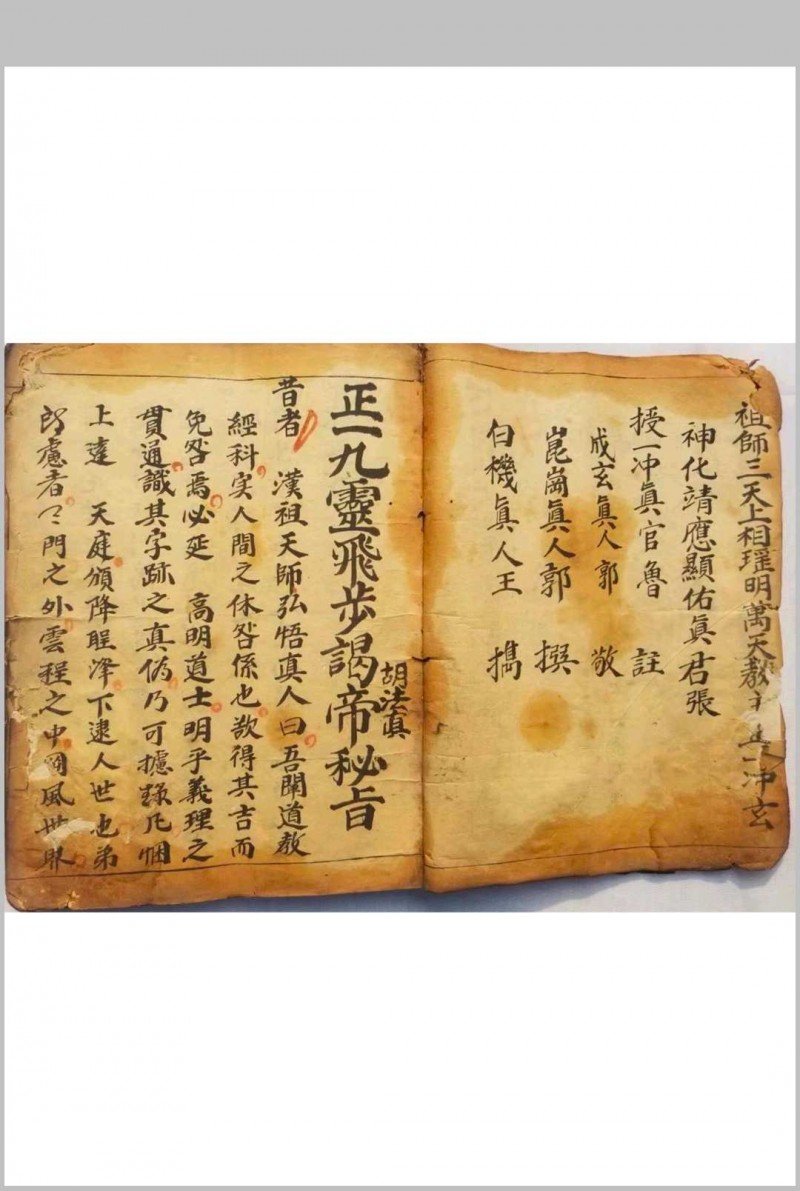 祖師三天上相瑶明萬天教主 一冲玄
神化靖應顯佑眞君張
授一冲眞官魯 註
成玄眞人郭 敬
崑崗眞人郭 撰
白機眞人王 擕
胡法眞
正一九靈飛步謁帝秘旨
昔者 漢祖天師弘悟真人曰吾聞道教
經科实人間之休咎係也欲得其吉而
免咎焉必延 高明道士明乎義理之
貫通識其字跡之真偽乃可據録凡悃
上達 天庭頒降 下逮人世也弟
慮者 門之外雲程之中罔風世界